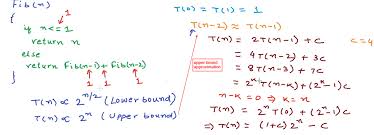 Fib(n)
{
if n <= 1
1
return n
else
return Fib(n-1) + Fib(n-2)
1 1 1
}
T(n) ∝ 2^{n/2} (Lower bound)
T(n) ∝ 2^n (Upper bound)
T(0) = T(1) = 1
T(n-2) ≈ T(n-1)
upper bound
approximation
T(n) = 2T(n-1) + c
c=4
= 4T(n-2) + 3c
= 8T(n-3) + 7c
= 2^k T(n-k) + (2^k-1)c
n-k = 0 ⇒ k = n
T(n) = 2^n T(0) + (2^n-1)c
⇒ T(n) = (1+c) 2^n - c